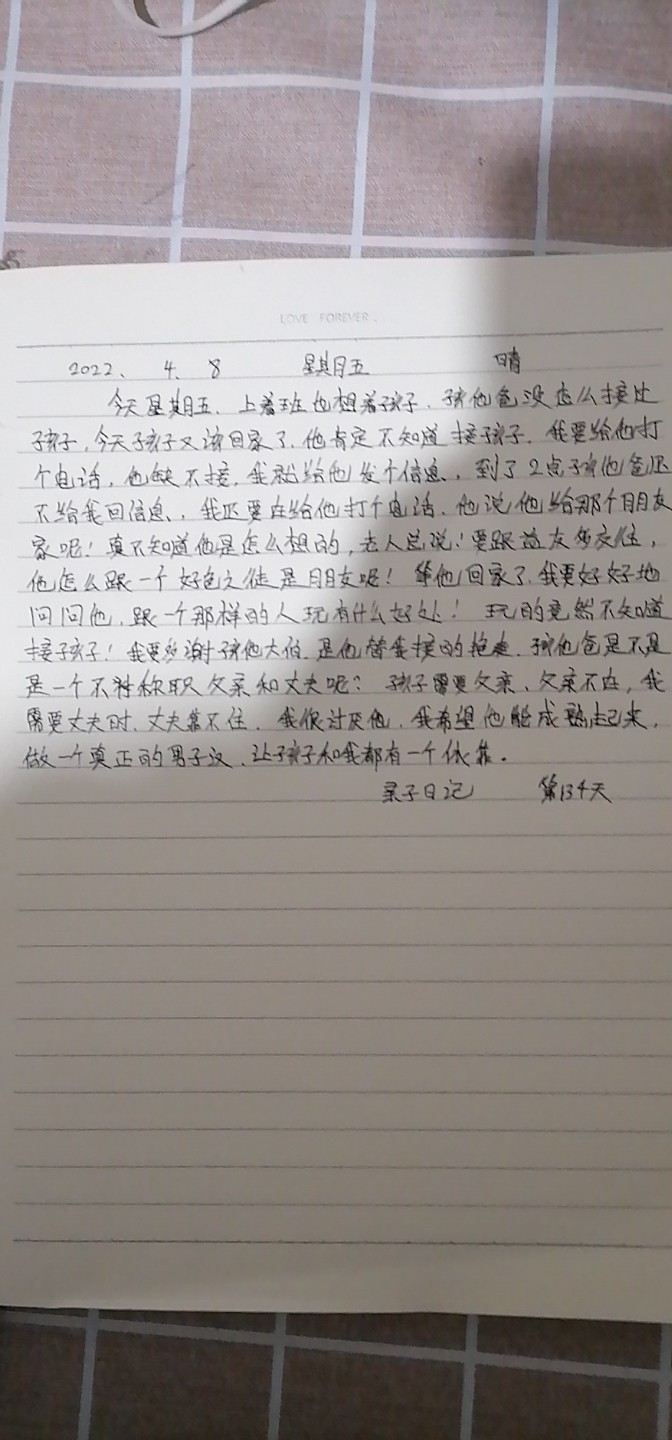 LOVE FOREVER.
2022、 4、 8 星期五 晴
今天星期五、上着班也想着孩子、孩他爸没怎么接过
孩子,今天孩子又该回家了,他肯定不知道接孩子、我要给他打
个电话,他缺不接,我就给他发个信息、到了2点孩他爸还
不给我回信息、我还要在给他打个电话、他说他给那个朋友
家呢!真不知道他是怎么想的,老人总说!要跟益友多交往,
他怎么跟一个好色之徒是朋友呢!等他回家了,我要好好地
问问他,跟一个那样的人玩有什么好处!玩的竟然不知道
接孩子!我要多谢孩他大伯、是他替我接的、孩他爸是不是
是一个不称职父亲和丈夫呢?孩子需要父亲、父亲不在,我
需要丈夫时、丈夫靠不住、我很讨厌他、我希望他能成熟起来,
做一个真正的男子汉、让孩子和我都有一个依靠。
亲子日记 第134天